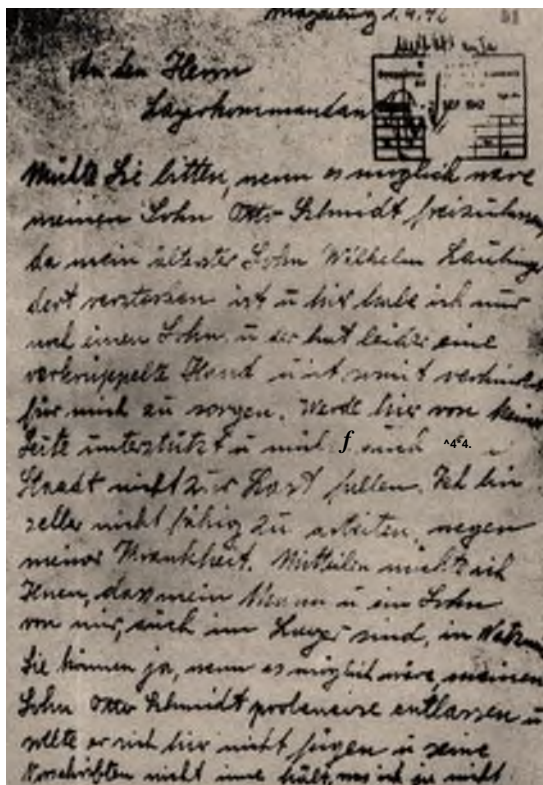 Magdeburg 1.4.42
An den Herrn
Lagerkommandan
Möchte Sie bitten, wenn es möglich wäre
meinen Sohn Otto Schmidt freizulassen,
da mein ältester Sohn Wilhelm Laubinge
dort verstorben ist u hier habe ich nur
noch einen Sohn, u der hat leider eine
verkrüppelte Hand u ist somit verhindert
für mich zu sorgen. Werde hier von keiner
Seite unterstützt u
Staadt nicht zur Last fallen. Ich bin
selber nicht fähig zu arbeiten, wegen
meiner Krankheit. Mitteilen möcht ich
Ihnen, dass mein Mann u ein Sohn
von mir, auch im Lager sind, in
Sie können ja, wenn es möglich wäre, meinen
Sohn Otto Schmidt probeweise entlassen u
sollte er sich hier nicht fügen u seine
Vorschriften nicht inne hält,